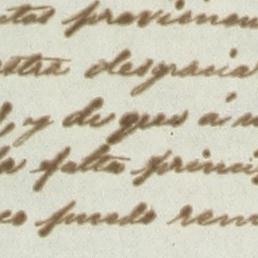 provienen
estra desgracia
, y de que á
la falta princi
co puedo rem